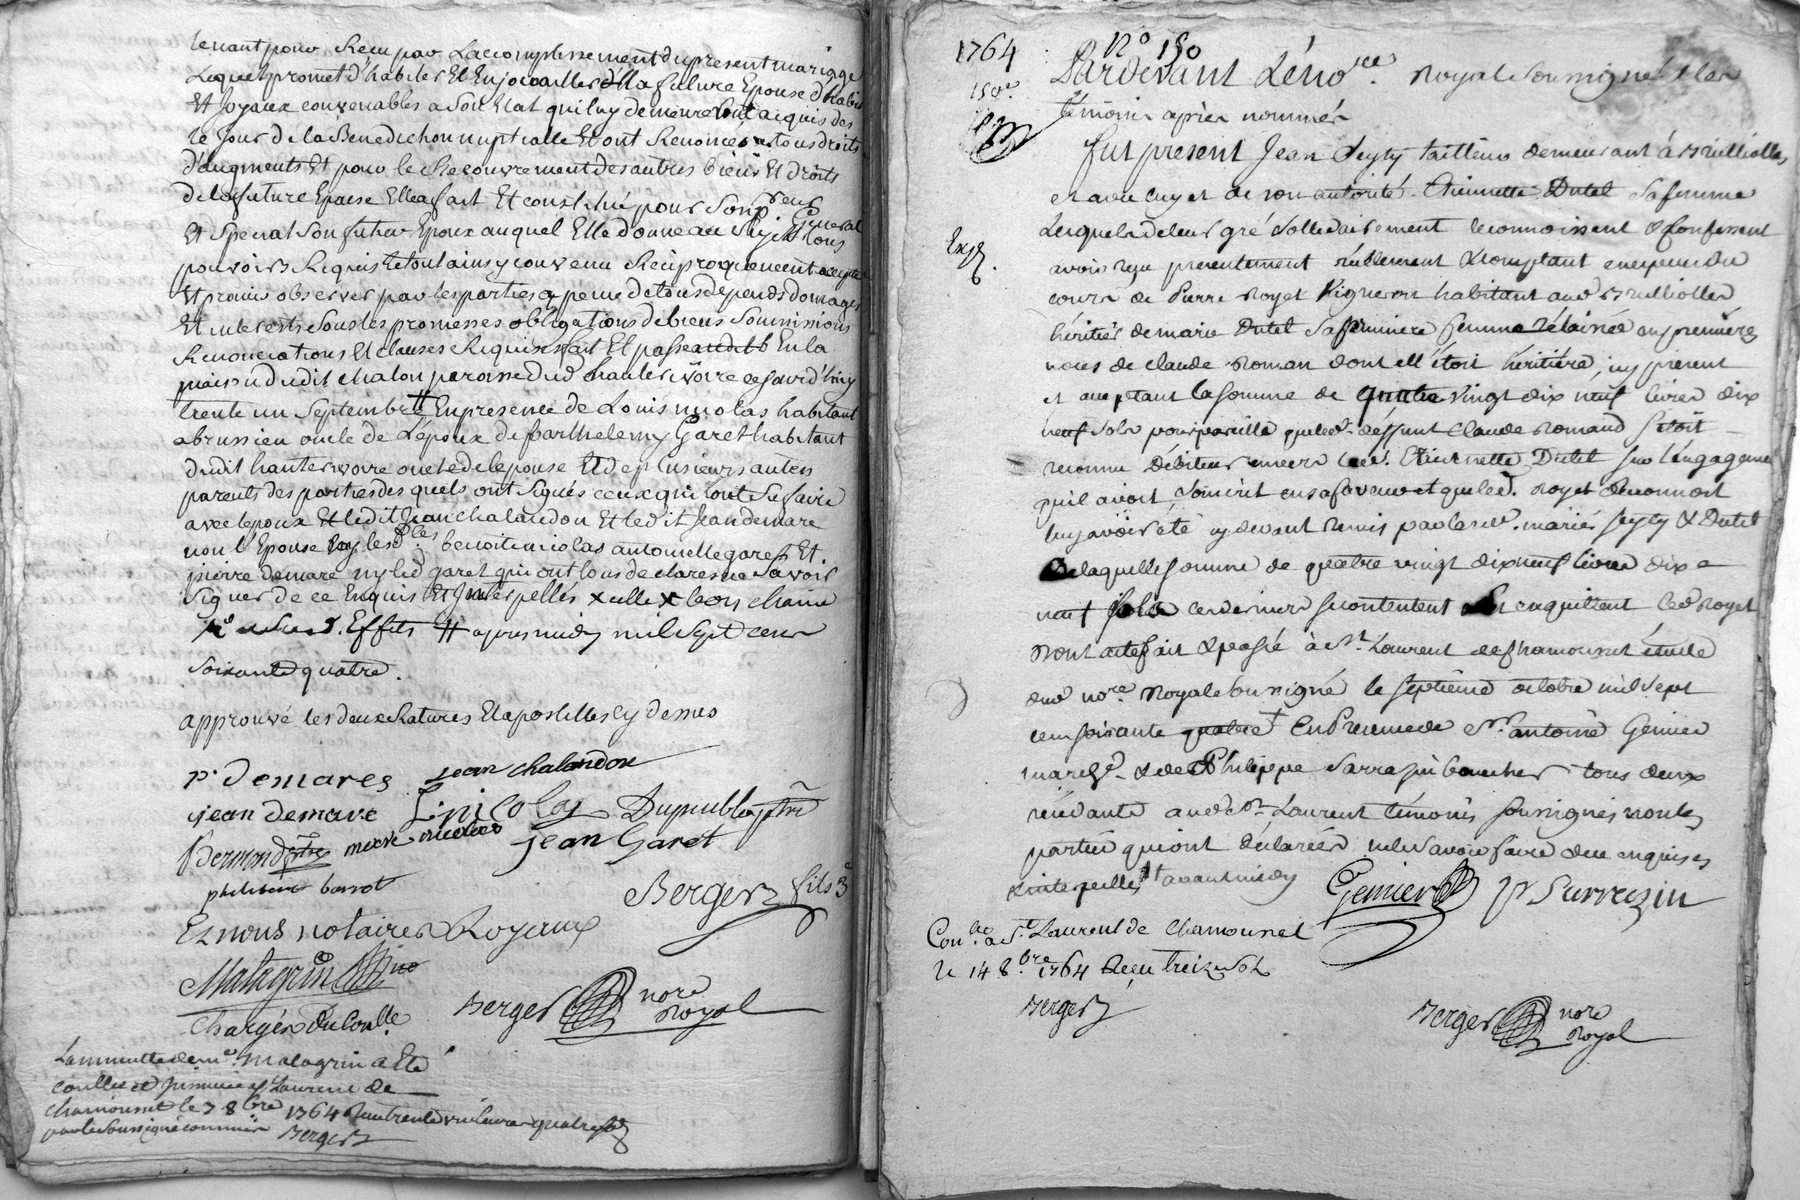 tenant pour Reçu par Laccomplissement du present mariage
Lequel promet d'habiller Et Enjoüailler lad la future Epouse d'habis
Et Joyaux convenables a Son Etat qui luy demeureront acquis des
le Jour de la Benediction nuptialle Et ont Renoncés a tous droits
d'augments Et pour le Recouvrement des autres biens Et droits
de la future Epouse Elle a fait Et constitué pour Son preur General
Et Special Son futur Epoux auquel Elle donne au Sujet tous
pouvoirs Requis le tout ainsy convenu Reciproquement accepté
Et promis observer par les parties a peine de tous depends domages
Et interests Sous les promesses obligations de biens Soumissions
Renonciations Et clauses Requises fait Et passé audit En la
maison dudit chalon paroisse dud hauterivoire ce jourd'huy
trente un Septembre # En presence de Louis nicolas habitant
a brussieu oncle de L'epoux de barthelemy Garet habitant
dudit hauterivoire oncle de lepouse Et de plusieurs autres
parents des parties des quels ont Signés ceux qui l'ont Sçu faire
avec lepoux Et ledit Jean chalandon Et ledit Jean demare
non l'Epouse ny lesd. benoit nicolas antoinette garet Et
pierre demare ny led garet qui ont tous declares ne Savoir
Signer de ce Enquis Et Interpellés x elle x
Effets # apres midy mil Sept cens
Soixante quatre.
approuvé les deux Ratures Et apostilles cy dessus
P. Demares jean chalandon
jean demare L. nicolas Dupeuble
marie nicolas jean Garet
philibert barrot
Berger fils
Et nous notaires Royaux
Malagrin
Chargé du Conlle
Berger nore
Royal
La minutte de me. Malagrin a Eté
conllée et St Laurent de
chamousset le 7 8bre 1764 Reçu trente huit livres quatre sols
par le Soussigné commis Berger
1764 N° 150
Pardevant Le nore. Royal Soussigné & les
témoins après nommés
Exp.
fut present Jean Seyty tailleur demeurant à Brulliolles
et avec luy et de son autorité Etiennette Dutel Sa femme
Lesquels de leur gré Sollidairement reconnoissent & confessent
avoir reçu presentement réellement & comptant en espèces du
cours de Pierre Royet Vigneron habitant aud Brulliolles
héritier de marie Dutel Sa femme relaissée en premières
noces de claude Roman dont ell' étoit héritière, icy present
et acceptant la somme de quatre vingt dix neuf livres dix
neuf sols pour pareille que led. deffunt Claude Romand s'etoit
reconnu Débiteur envers lad. Etiennette Dutel par l'engagement
qu'il avoit consenti en sa faveur et que led. Royet reconnoit
luy avoir été cy devant remis par lesd. mariés Seyty & Dutel
de laquelle somme de quatre vingt dix neuf livres dix
neuf sols ces derniers se contentent & en quittent led Royet
Dont acte fait & passé à St. Laurent de Chamousset étude
dud nore Royal Soussigné le septième octobre mil sept
cens soixante quatre † En Presence de Sr antoine Genier
march. & de Philippe Sarrazin boucher tous deux
résidants aud St Laurent témoins soussignés non les
parties qui ont déclarées ne le savoir faire de ce enquises
& interpellés † avant midy
Genier Ph Sarrazin
Con.lé a St. Laurent de Chamousset
le 14 8bre. 1764 Reçu treize sols
Berger
Berger nore
Royal